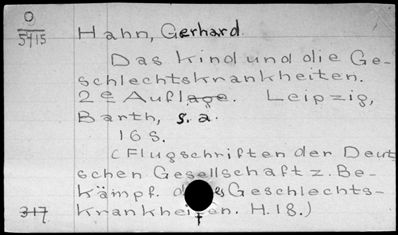 O
5415
Hahn, Gerhard
Das Kind und die Ge-
schlechtskrankheiten.
2e Auflage. Leipzig,
Barth, s.a.
16 s.
(Flugschriften der Deut
schen Gesellschaft z. Be-
kämpf. d es Geschlechts-
317 Krankheiten. H.18.)